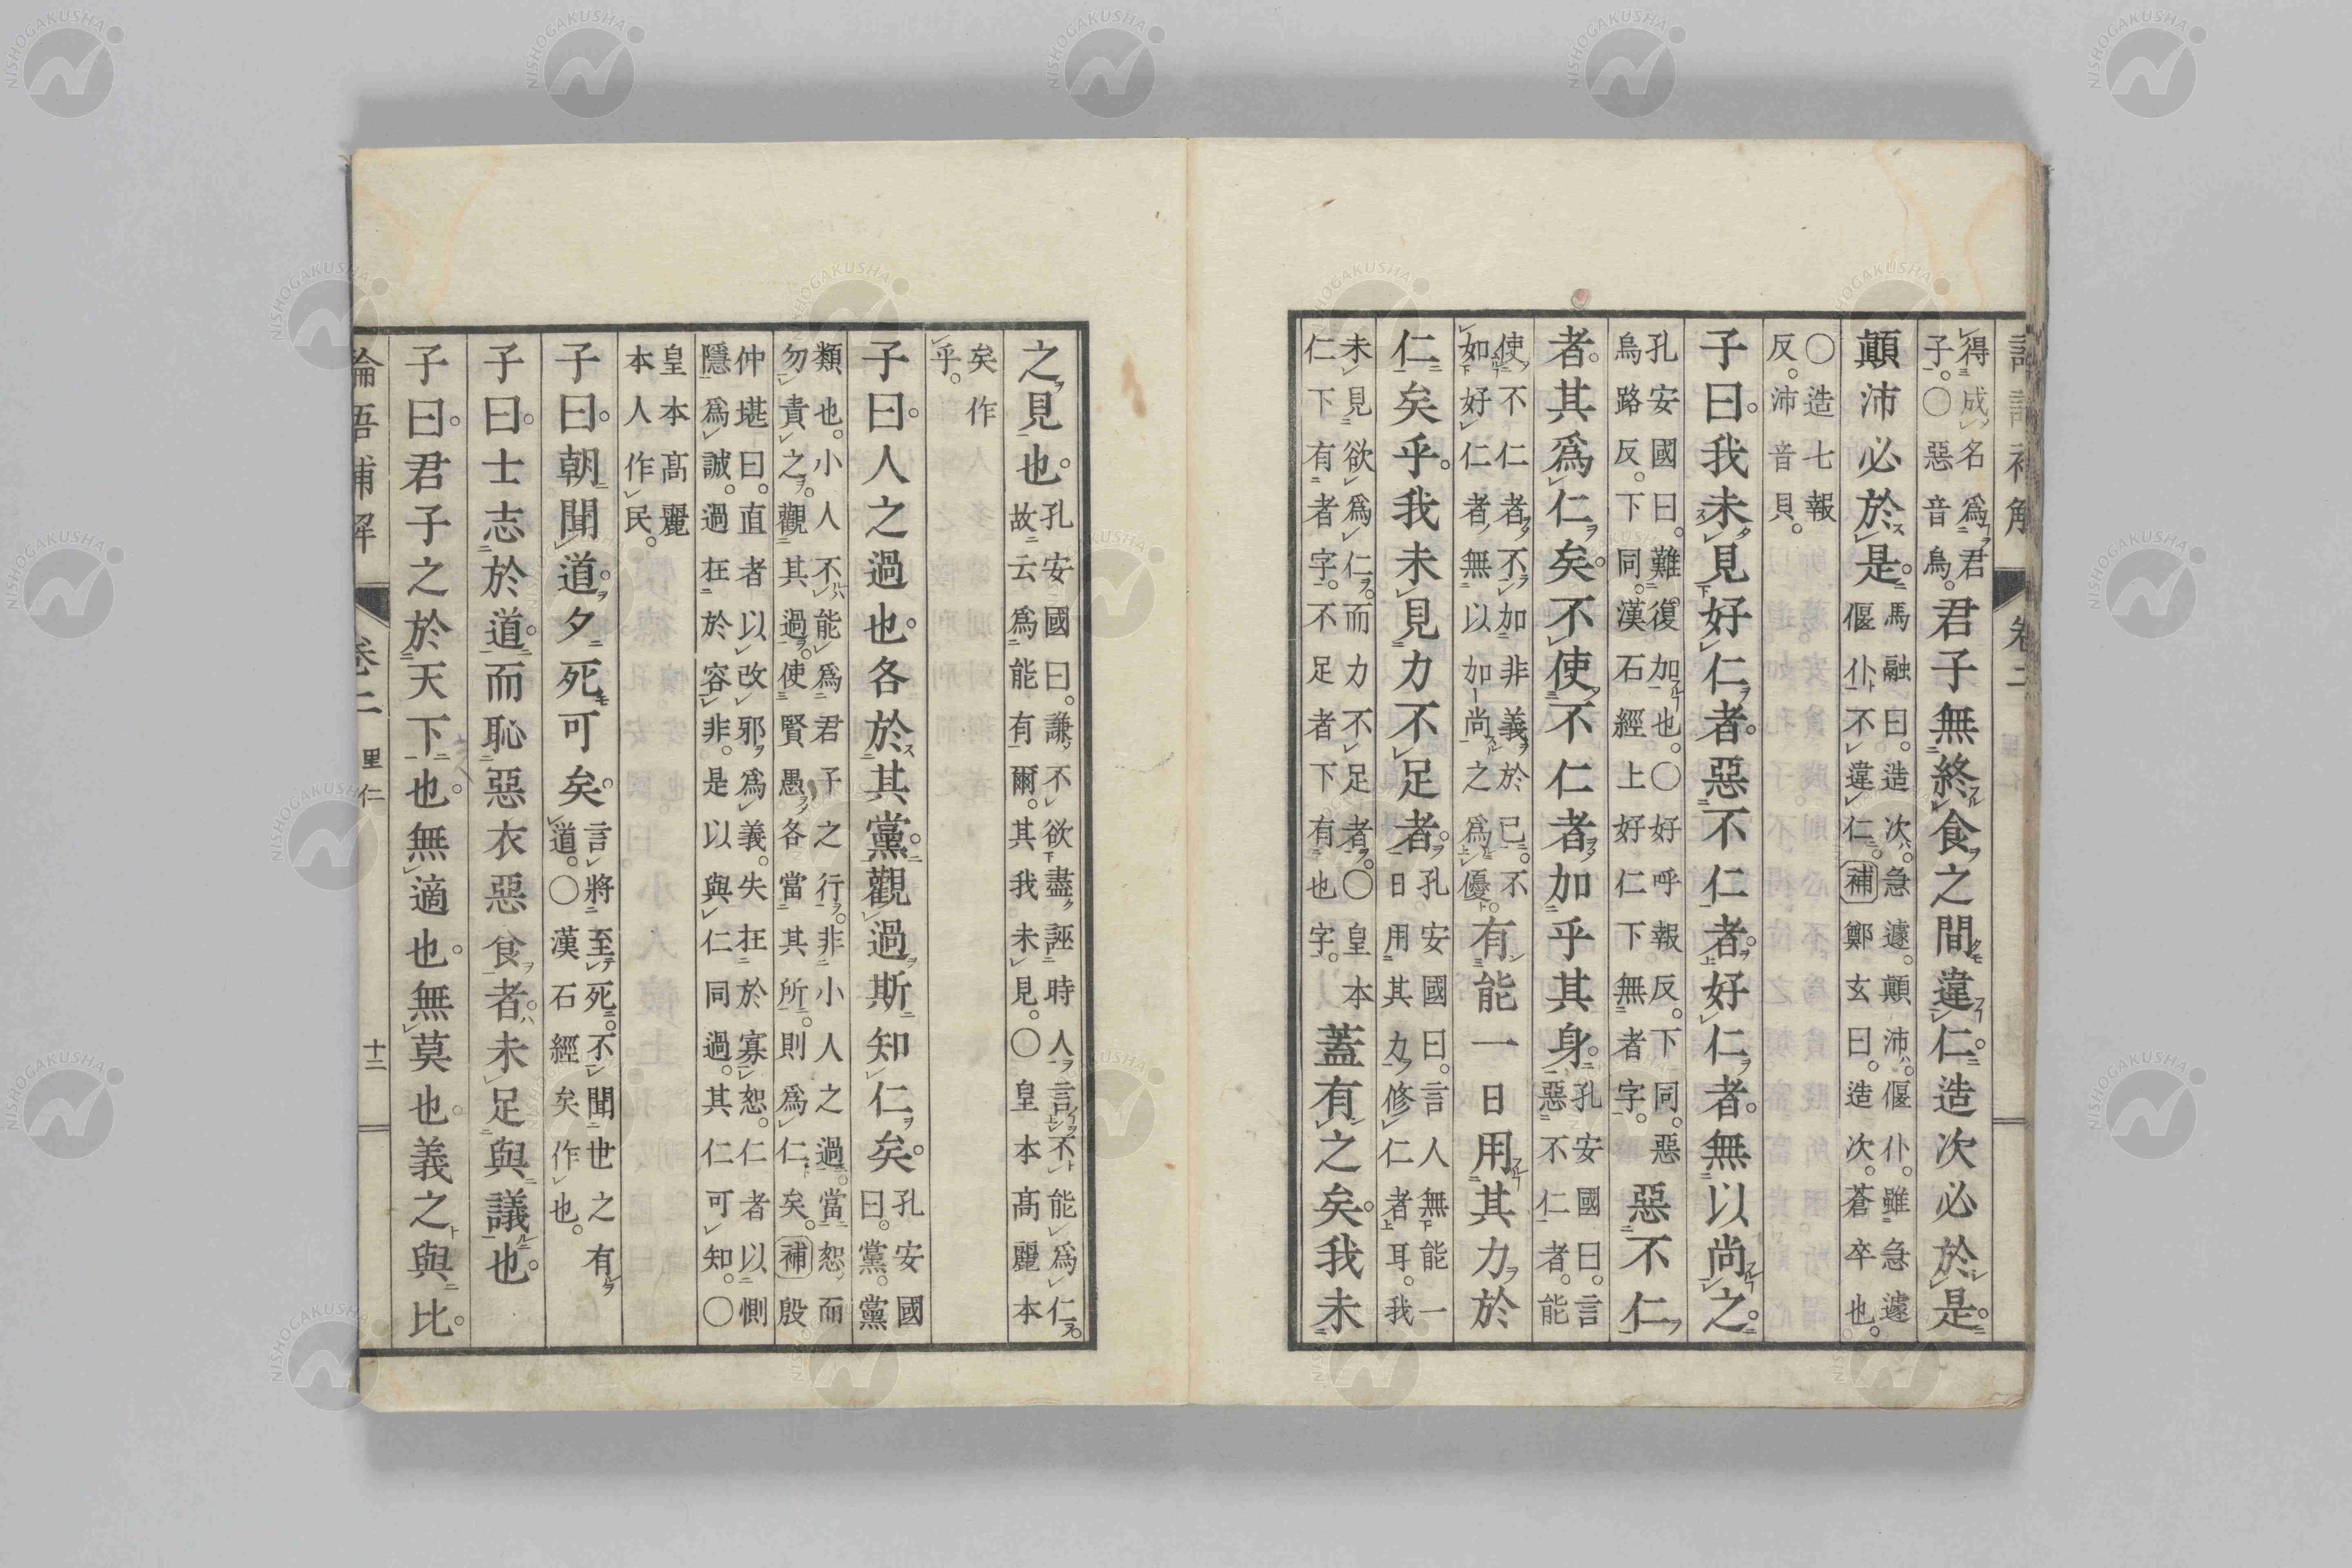 論語補解 卷二
得成名爲君子。○惡音烏。君子無終食之間違仁。造次必於是。
顚沛必於是。馬融曰。造次。急遽。顚沛。偃仆。雖急遽偃仆不違仁。補鄭玄曰。造次。蒼卒也。
○造七報反。沛音貝。
子曰。我未見好仁者。惡不仁者。好仁者。無以尚之。
孔安國曰。難復加也。○好呼報反。下同。惡烏路反。下同。漢石經上好仁下無者字。惡不仁
者。其爲仁矣。不使不仁者加乎其身。孔安國曰。言惡不仁者。能
使不仁者不加非義於己。不如好仁者無以加尚之爲優。有能一日用其力於
仁矣乎。我未見力不足者。孔安國曰。言人無能一日用其力修仁者耳。我
未見欲爲仁。而力不足者。○皇本仁下有者字。不足者下有也字。蓋有之矣。我未
之見也。孔安國曰。謙不欲盡誣時人言不能爲仁。故云爲能有爾。其我未見。○皇本高麗本
矣作乎。
子曰。人之過也。各於其黨。觀過斯知仁矣。孔安國曰。黨。黨
類也。小人不能爲君子之行。非小人之過。當恕而勿責之。觀其過。使賢愚各當其所。則爲仁矣。補殷
仲堪曰。直者以改邪爲義。失在於寡恕。仁者以惻隱爲誠。過在於容非。是以與仁同過。其仁可知。○
皇本高麗本人作民。
子曰。朝聞道。夕死可矣。言將至死。不聞世之有道。○漢石經矣作也。
子曰。士志於道。而恥惡衣惡食者。未足與議也。
子曰。君子之於天下也。無適也。無莫也。義之與比。
論語補解 卷二 里仁 十二
NISHOGAKUSHA